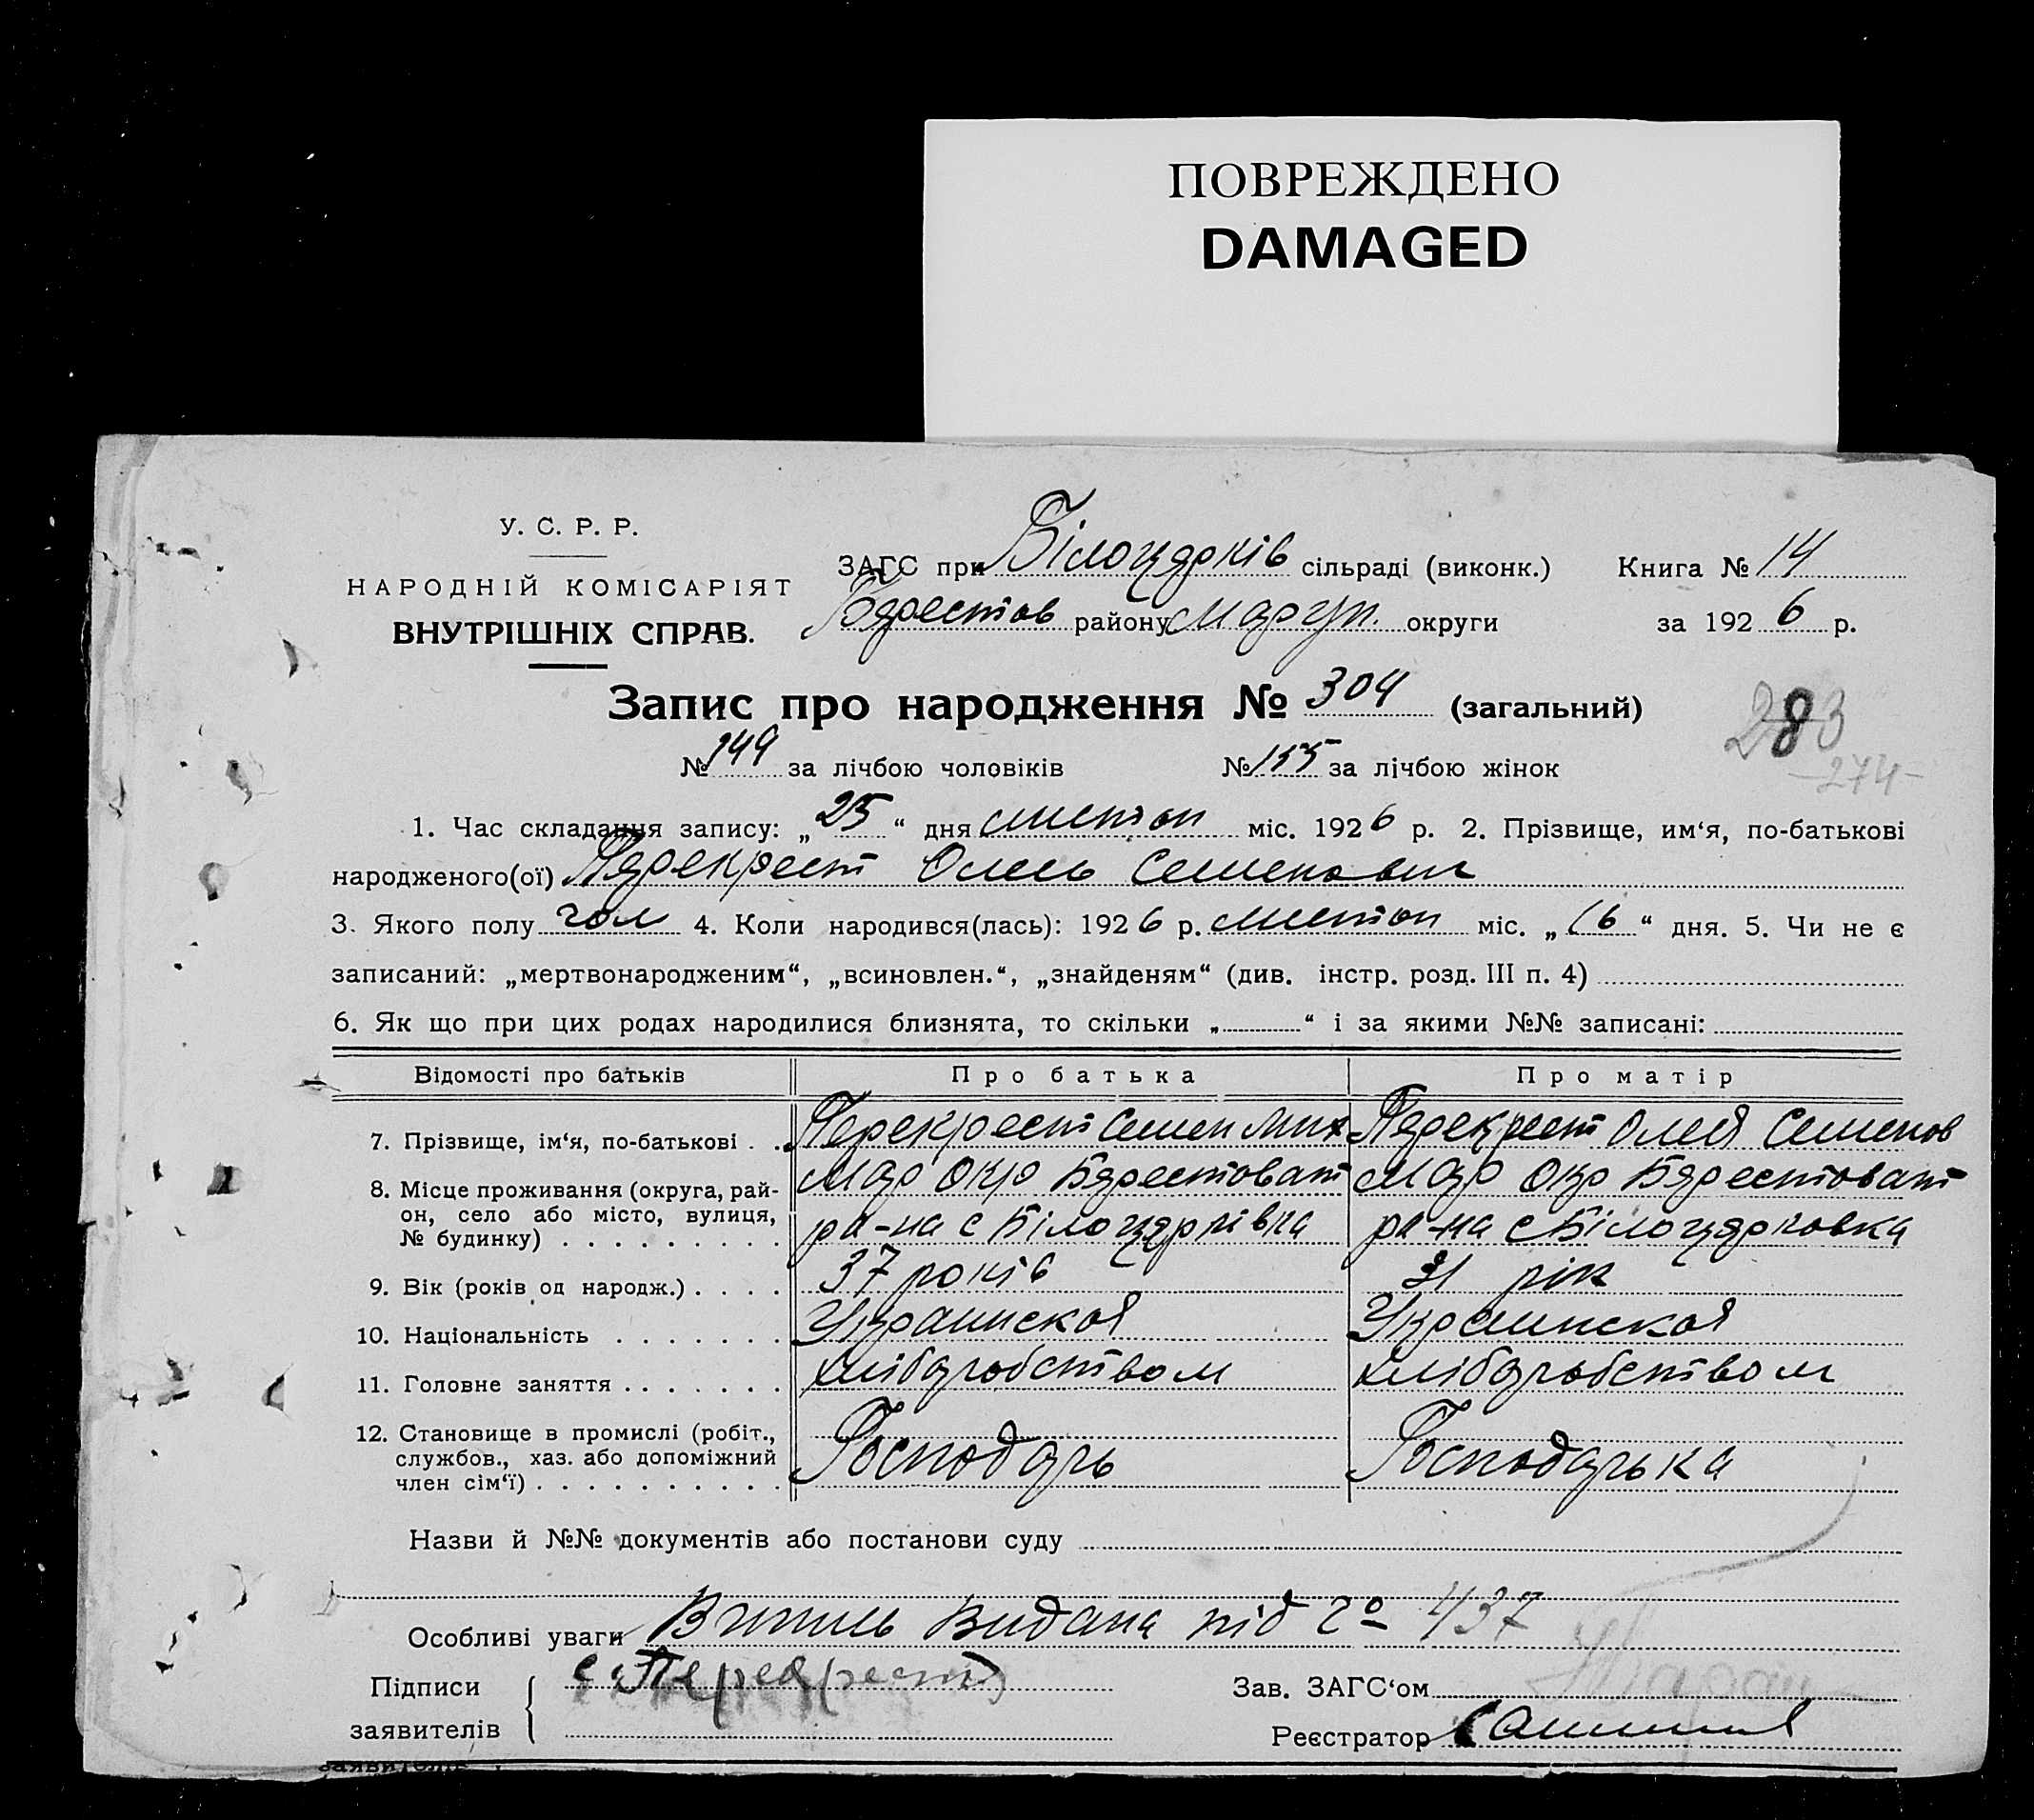 ПОВРЕЖДЕНО
DAMAGED
У. С. Р. Р.
НАРОДНІЙ КОМІСАРІЯТ
ВНУТРІШНІХ СПРАВ.
ЗАГС при Білоцерків сільраді (виконк.) Книга № 14
Берестов району Маріуп. округи за 1926 р.
Запис про народження № 304 (загальний)
283
-274-
№ 149 за лічбою чоловіків № 155 за лічбою жінок
1. Час складання запису: „25“ дня листоп міс. 1926 р. 2. Прізвище, им‘я, по-батькові
народженого(ої) Перекрест Олесь Семенович
3. Якого полу чол 4. Коли народився(лась): 1926 р. листоп міс. „16“ дня. 5. Чи не є
записаний: „мертвонародженим“, „всиновлен.“, „знайденям“ (див. інстр. розд. III п. 4)
6. Як що при цих родах народилися близнята, то скільки „ “ і за якими №№ записані:
Відомості про батьків Про батька Про матір
7. Прізвище, ім‘я, по-батькові . . Перекрест Семен Мих Перекрест Олея Семенов
8. Місце проживання (округа, рай- Мар Окр Берестоват Мар Окр Берестоват
он, село або місто, вулиця, ра-на с Білоцерківка ра-на с Білоцерковка
№ будинку) . . . . . . . . .
9. Вік (років од народж.) . . . . 37 років 31 рік
10. Національність . . . . . . . Украинская Украинская
11. Головне заняття . . . . . . . хліборобством хліборобством
12. Становище в промислі (робіт.,
службов., хаз. або допоміжний Господарь Господарька
член сім‘ї) . . . . . . . . . .
Назви й №№ документів або постанови суду
Особливі уваги Витись видана під № 437
Підписи С Перекрест Зав. ЗАГС‘ом
заявителів Реєстратор
заявителів